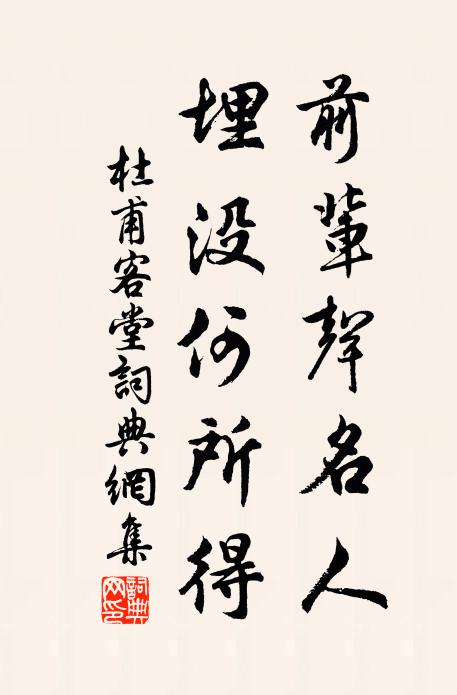 前輩聲名人
埋没何所得
杜甫客堂詞典網集
詞典网印